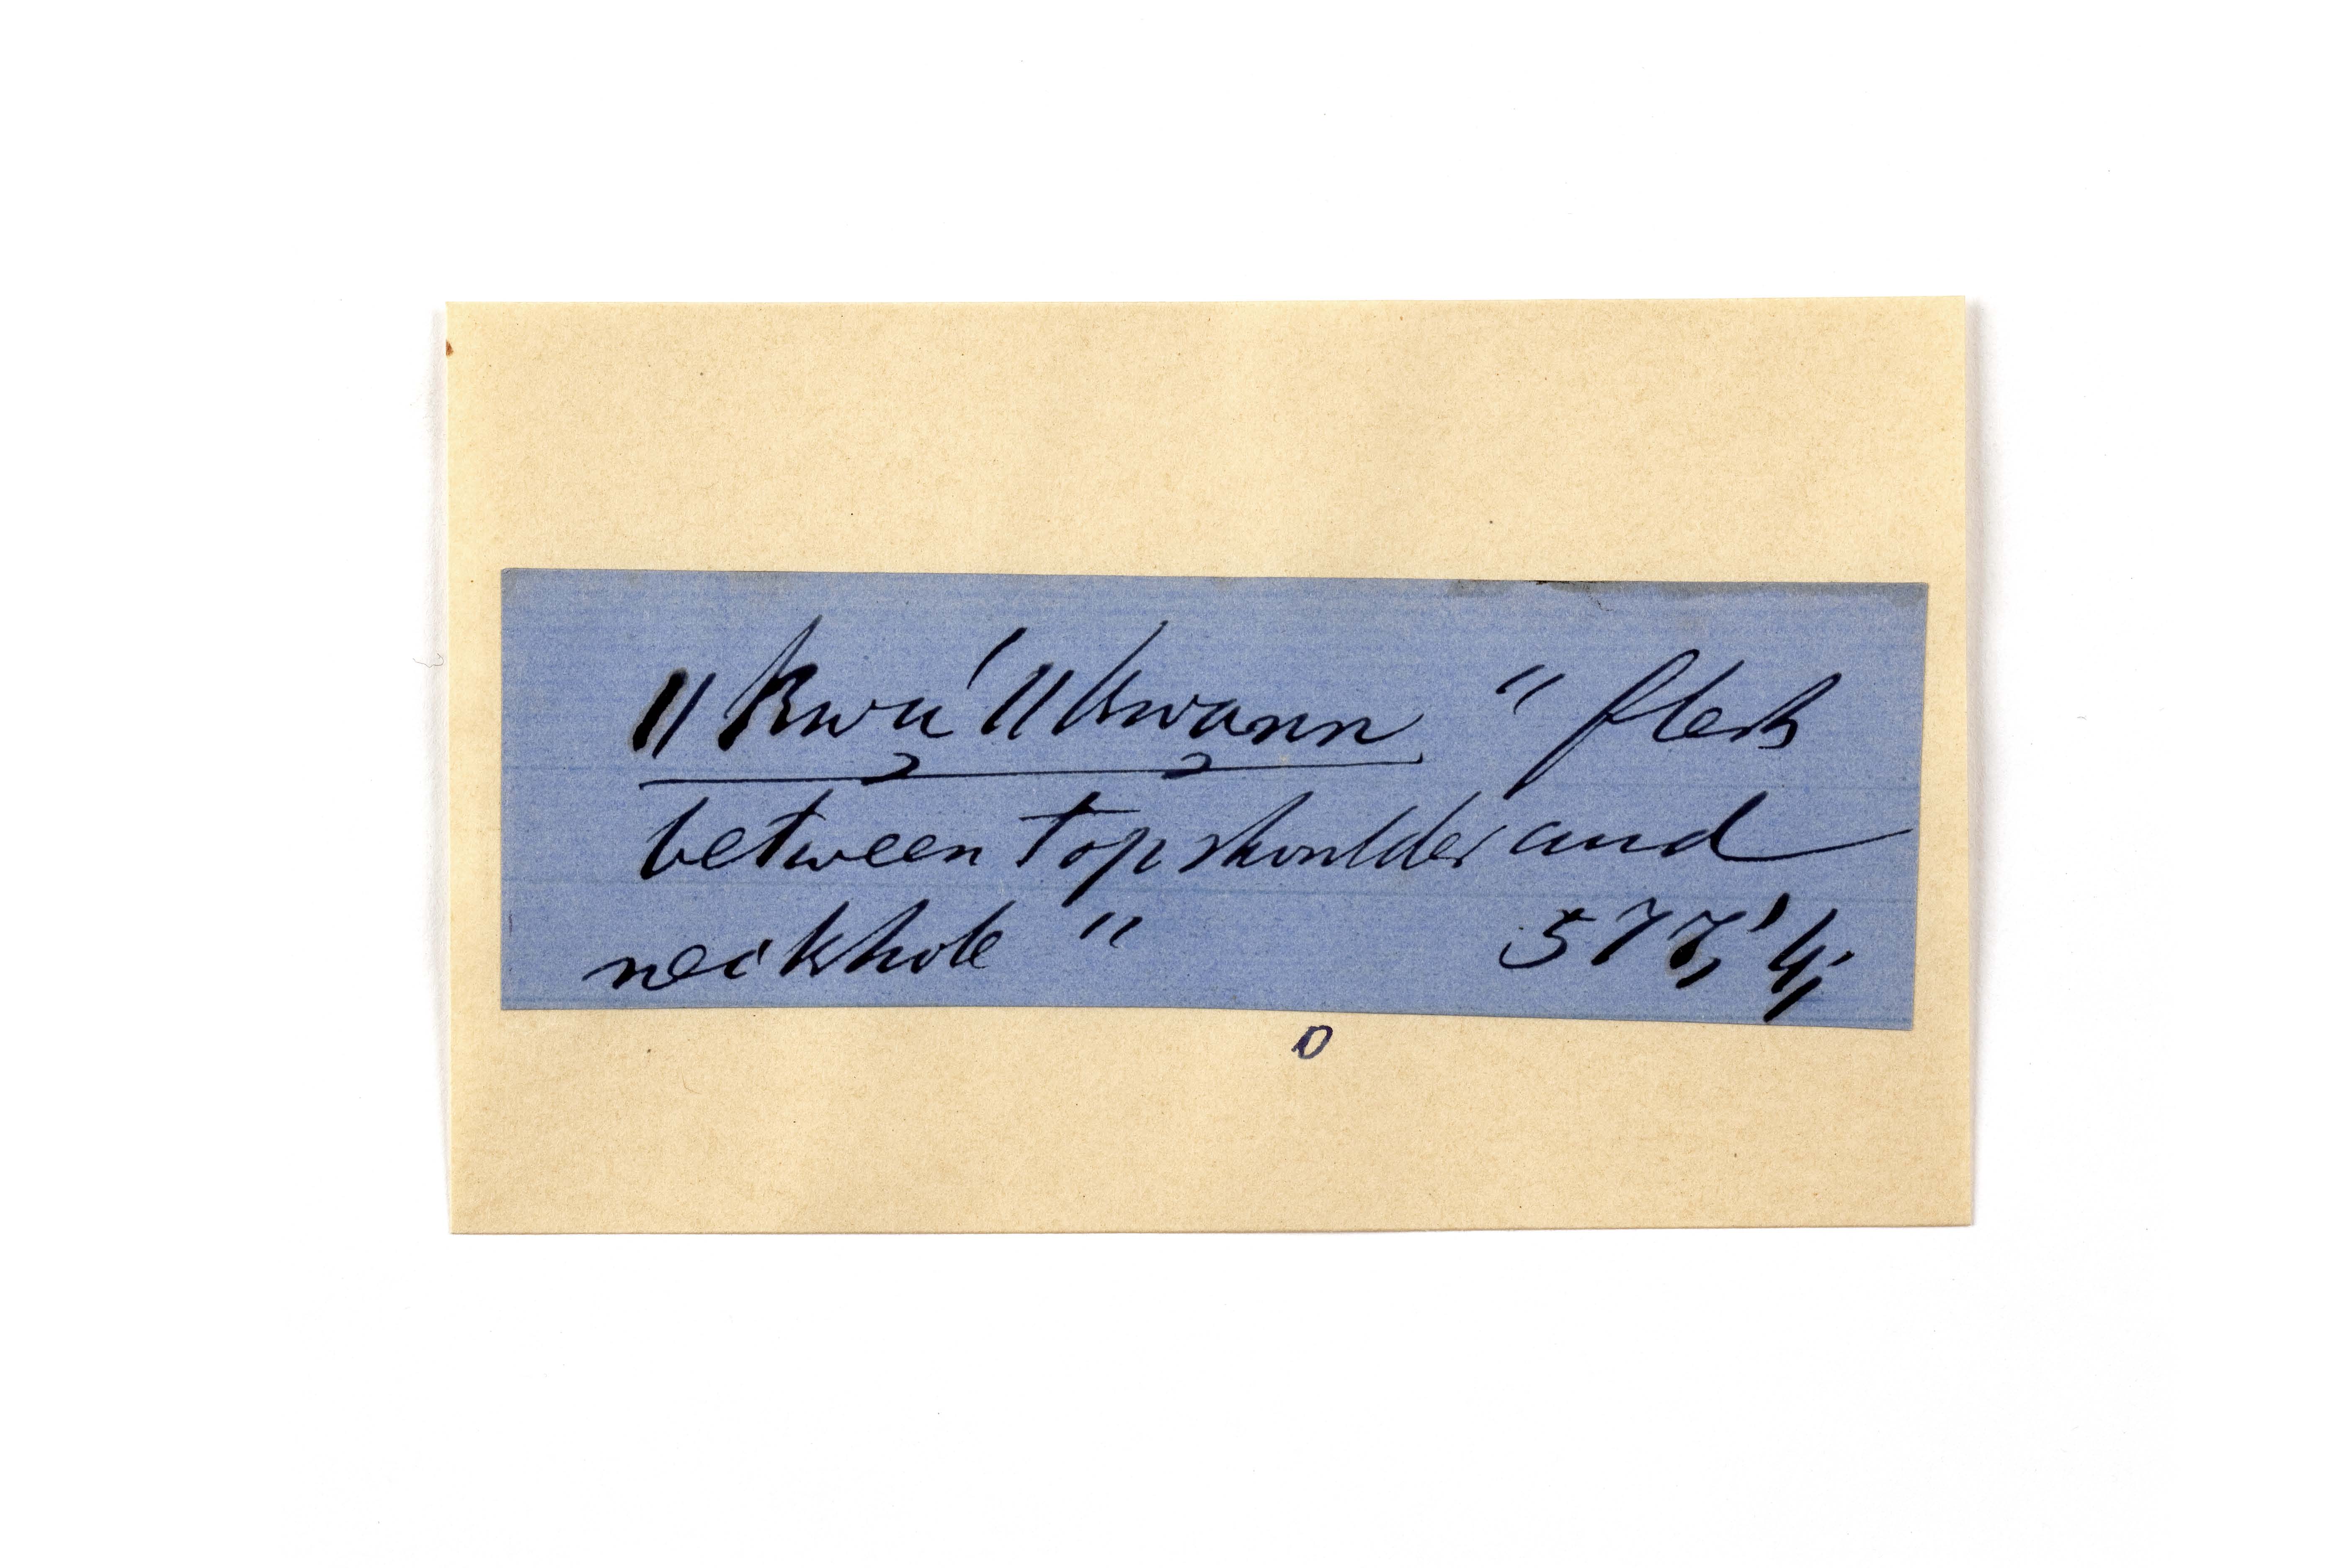 ǁkwu̠' ǁkwa̠nn " flesh
between top shoulder and
neckhole " 577,'4,'
0